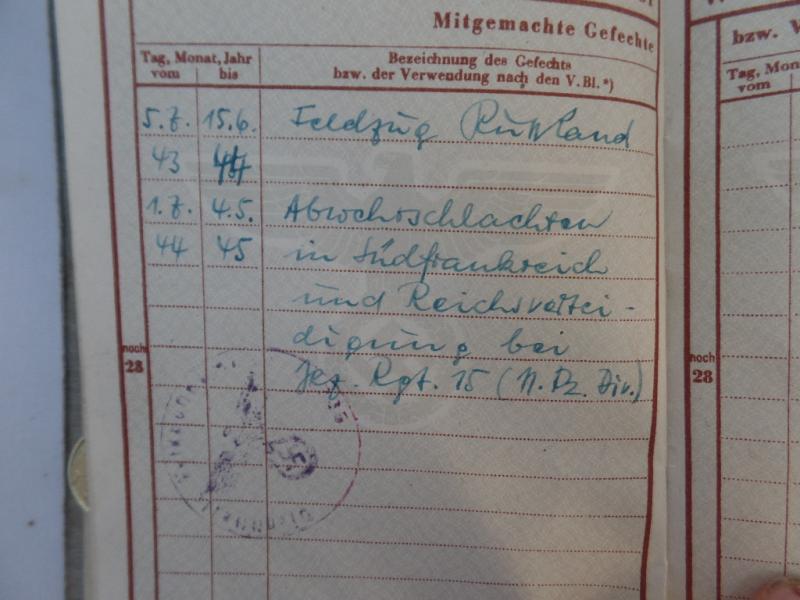 Mitgemachte Gefechte
Tag, Monat, Jahr
vom bis
Bezeichnung des Gefechts
bzw. der Verwendung nach den V.Bl.*)
5.7. 15.6. Feldzug Rußland
43 44
1.7. 4.5. Abwehrschlachten
44 45 in Südfrankreich
und Reichsvertei-
digung bei
noch
28
Pz. Rgt. 15 (11. Pz. Div.)
bzw.
Tag, Mon
vom
noch
28